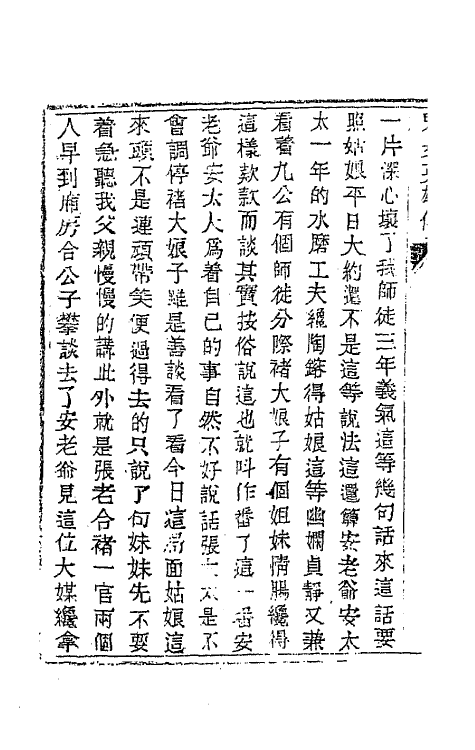 一片深心壞了我師徒三年義氣這等幾句話來這話要
照姑娘平日大約還不是這等說法這還算安老爺安太
太一年的水磨工夫纔陶鎔得姑娘這等幽嫻貞靜又兼
看着九公有個師徒分際褚大娘子有個姐妹情腸纔得
這樣款款而談其實按俗說這也就呌作番了這一番安
老爺安太太爲着自己的事自然不好說話張太太是不
會調停褚大娘子雖是善談看了看今日這局面姑娘這
來頭不是連頑帶笑便過得去的只說了句妹妹先不要
着急聽我父親慢慢的講此外就是張老合褚一官兩個
人早到廂房合公子攀談去了安老爺見這位大媒纔拿